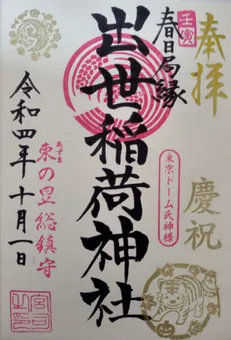 奉拝
慶祝
壬寅
春日局縁
東京ドーム氏神様
出世稲荷神社
あずま
東の里総鎮守
令和四年十月一日